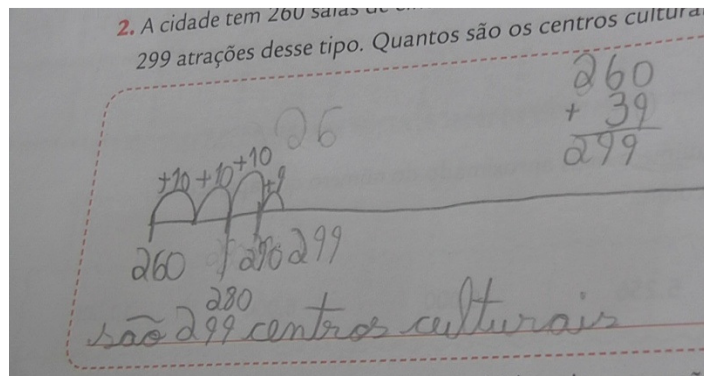 2. A cidade tem 260 salas de
299 atrações desse tipo. Quantos são os centros cultura
260
+ 39
299
26
+10 +10 +10 +9
260 290 299
280
são 299 centros culturais